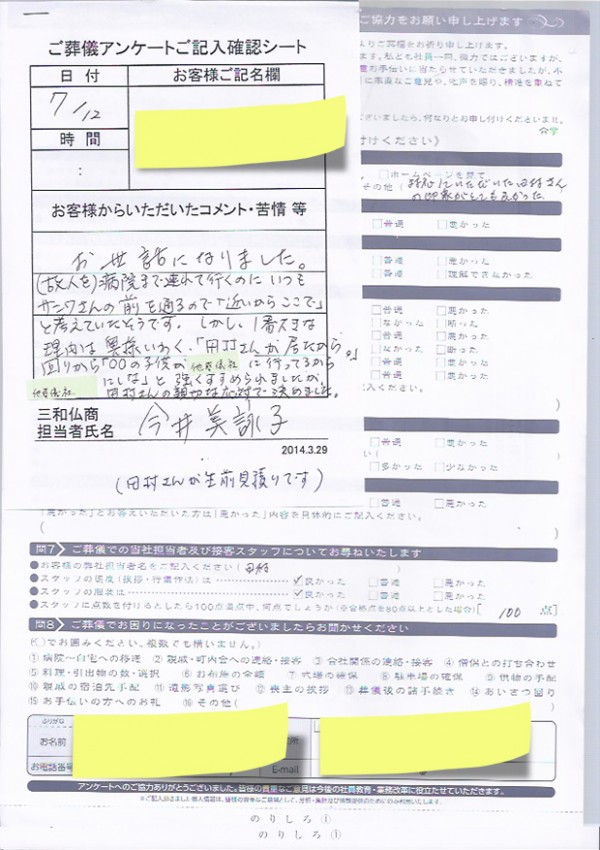 ご葬儀アンケートご記入確認シート
日付
お客様ご記名欄
7/12
時間
:
お客様からいただいたコメント・苦情 等
お世話になりました。
(故人を)病院まで連れて行くのに いつも
サンワさんの前を通るので「近いからここで」
と考えていたそうです。しかし、1番大きな
理由は奥様いわく、「田村さんが居たから。」
回りから「〇〇の子供が 他葬儀社 に行ってるから
他葬儀社 にしな」と 強くすすめられましたが、
田村さんの親切な応対で決めました。
三和仏商
担当者氏名
今井美詠子
2014.3.29
(田村さんが生前見積りです)
ご協力をお願い申し上げます
ホームページを見て
その他(
対応していただいた田村さん
の印象がとても良かった
普通 悪かった
普通 悪かった
普通 理解できなかった
普通 悪かった
なかった 断った
普通 悪かった
なかった 断った
普通 悪かった
普通 悪かった
普通 悪かった
多かった 少なかった
普通 悪かった
「悪かった」とお答えいただいた方は「悪かった」内容を具体的にご記入ください。
問7 ご葬儀での当社担当者及び接客スタッフについてお尋ねいたします
●お客様の弊社担当者名をご記入ください(田村)
●スタッフの態度(挨拶・行儀作法)は 良かった 普通 悪かった
●スタッフの服装は 良かった 普通 悪かった
●スタッフに点数を付けるとしたら100点満点中、何点でしょうか(※合格点を80点以上とした場合)[ 100 点]
問8 ご葬儀でお困りになったことがございましたらお聞かせください
(○でお囲みください。複数でも構いません。)
①病院〜自宅への移送 ②親戚・町内会への連絡・接客 ③会社関係の連絡・接客 ④僧侶との打ち合わせ
⑤料理・引出物の数・選択 ⑥お布施の金額 ⑦式場の確保 ⑧駐車場の確保 ⑨供物の手配
⑩親戚の宿泊先手配 ⑪遺影写真選び ⑫喪主の挨拶 ⑬葬儀後の諸手続き ⑭あいさつ回り
⑮お手伝いの方へのお礼 ⑯その他(
ふりがな
お名前
お電話番号
E-mail
アンケートへのご協力ありがとうございました。皆様の貴重なご意見は今後の社員教育・業務改革に役立たせていただきます。
のりしろ①
のりしろ①